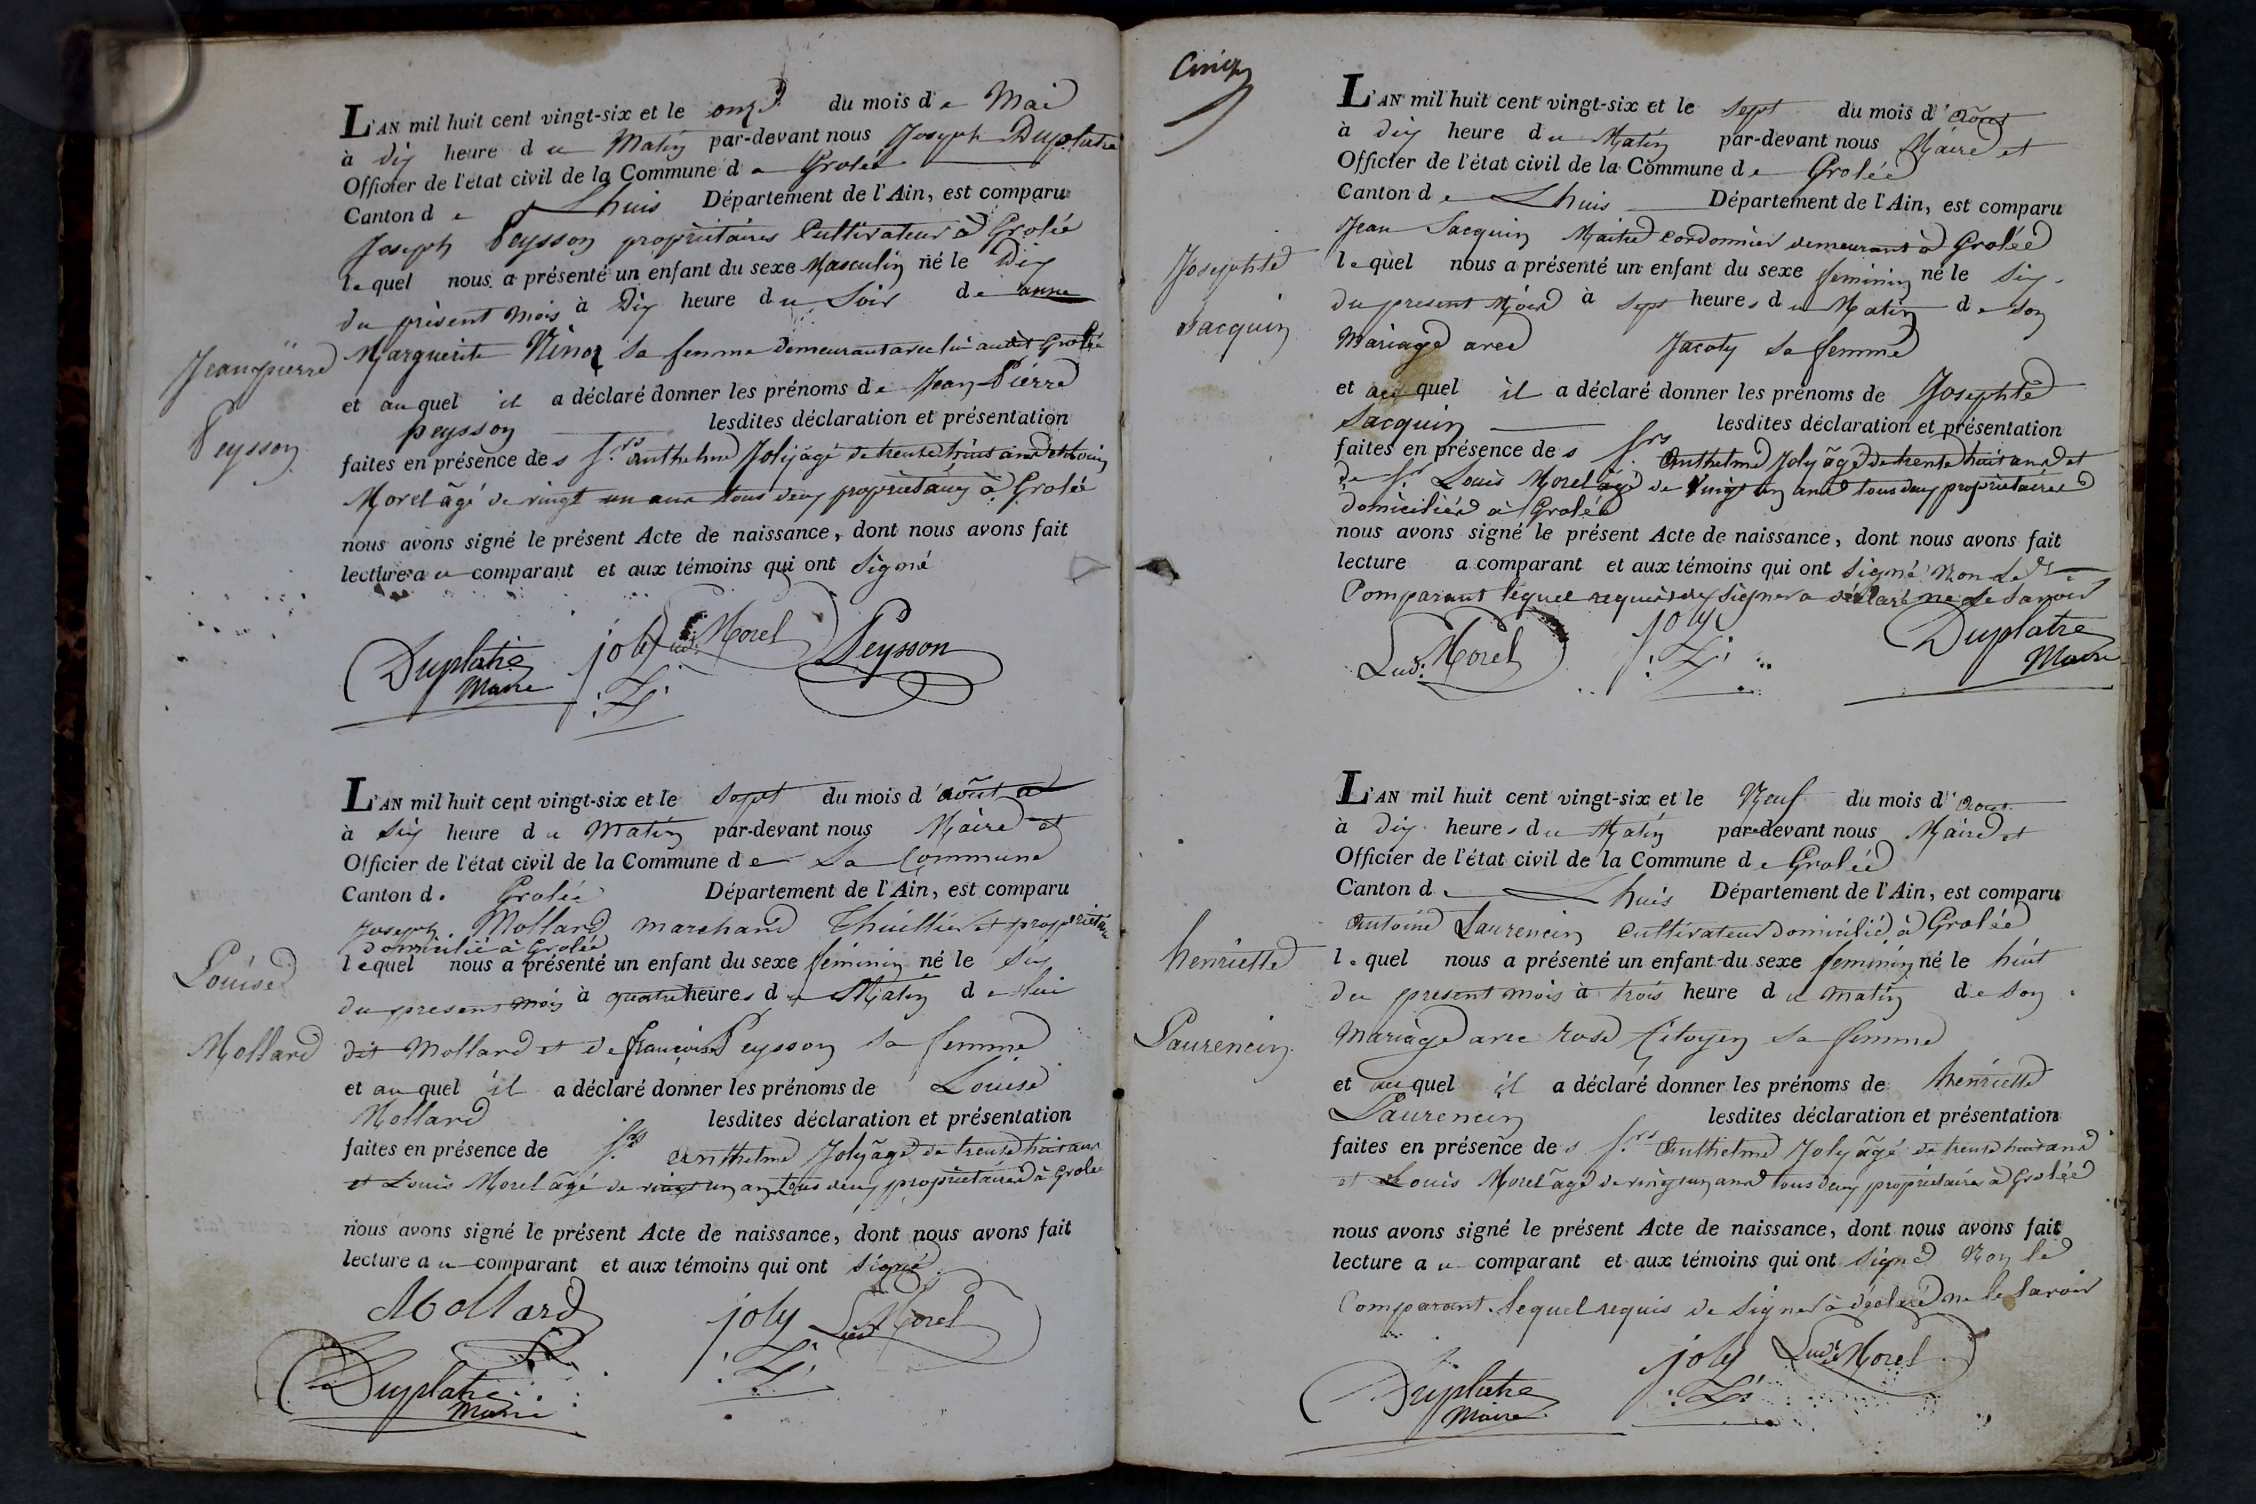 L'AN mil huit cent vingt-six et le onze du mois de Mai
à dix heure du Matin par-devant nous Joseph Duplatre
Officier de l'état civil de la Commune de Grolée
Canton de Lhuis Département de l'Ain, est comparu
Joseph Peysson propriétaires Cultivateur à Grolée
lequel nous a présenté un enfant du sexe Masculin né le Dix
du présent mois à Dix heure du Soir de anne
Marguerite sa femme demeurant avec lui audit Grolée
Jean pierre
et auquel il a déclaré donner les prénoms de Jean Pierre
peysson lesdites déclaration et présentation
Peysson
faites en présence des Srs anthelme Joly agé de trente huit ans et Louis
Morel âgé de vingt un ans tous deux propriétaires à Grolée
nous avons signé le présent Acte de naissance, dont nous avons fait
lecture au comparant et aux témoins qui ont signé
Duplatre joly Lud. Morel Peysson
Maire
L'AN mil huit cent vingt-six et le sept du mois d'août
à six heure du matin par-devant nous Maire et
Officier de l'état civil de la Commune de La Commune
Canton d. Grolée Département de l'Ain, est comparu
joseph Mollard marchand Thuillier et propriétaire
domicilié à Grolée
lequel nous a présenté un enfant du sexe féminin né le Six
Louise
du present mois à quatre heures du Matin de lui
Mollard
dit Mollard et de françoise Peysson sa femme
et auquel il a déclaré donner les prénoms de Louise
Mollard lesdites déclaration et présentation
faites en présence de Srs anthelme Joly âgé de trente huit ans
et Louis Morel âgé de vingt un an tous deux propriétaires à Grolée
nous avons signé le présent Acte de naissance, dont nous avons fait
lecture au comparant et aux témoins qui ont signé
Mollard joly Lud. Morel
Duplatre
Maire
Cinq
L'AN mil huit cent vingt-six et le sept du mois d'août
à dix heure du Matin par-devant nous Maire et
Officier de l'état civil de la Commune de Grolée
Canton de Lhuis Département de l'Ain, est comparu
Jean Sacquin Maitre cordonnier demeurant à Grolée
Josephte
lequel nous a présenté un enfant du sexe feminin né le six
du present mois à sept heures du Matin de son
Sacquin
Mariage avec Jacoty sa femme
et auquel il a déclaré donner les prénoms de Josephte
Sacquin lesdites déclaration et présentation
faites en présence des Srs Anthelme Joly âgé de trente huit ans et
de Sr Louis Morel âgé de vingt un ans tous deux propriétaires
domiciliés à Grolée
nous avons signé le présent Acte de naissance, dont nous avons fait
lecture a comparant et aux témoins qui ont signé Non le
Comparant lequel requis de signer a déclaré ne le savoir
Lud. Morel joly Duplatre
Maire
L'AN mil huit cent vingt-six et le Neuf du mois d'Aout
à dix heures du Matin par-devant nous Maire et
Officier de l'état civil de la Commune de Grolée
Canton de Lhuis Département de l'Ain, est comparu
Antoine Laurencin cultivateur domicilié à Grolée
henriette
lequel nous a présenté un enfant du sexe feminin né le huit
du present mois à trois heure du matin de son
Laurencin
Mariage avec rose Citoyen sa femme
et auquel il a déclaré donner les prénoms de henriette
Laurencin lesdites déclaration et présentation
faites en présence des Srs Anthelme Joly âgé de trente huit ans
et Louis Morel âgé de vingt un ans tous deux propriétaires à Grolée
nous avons signé le présent Acte de naissance, dont nous avons fait
lecture au comparant et aux témoins qui ont signé Non le
Comparant lequel requis de signer à déclaré ne le savoir
Duplatre joly Lud. Morel
Maire